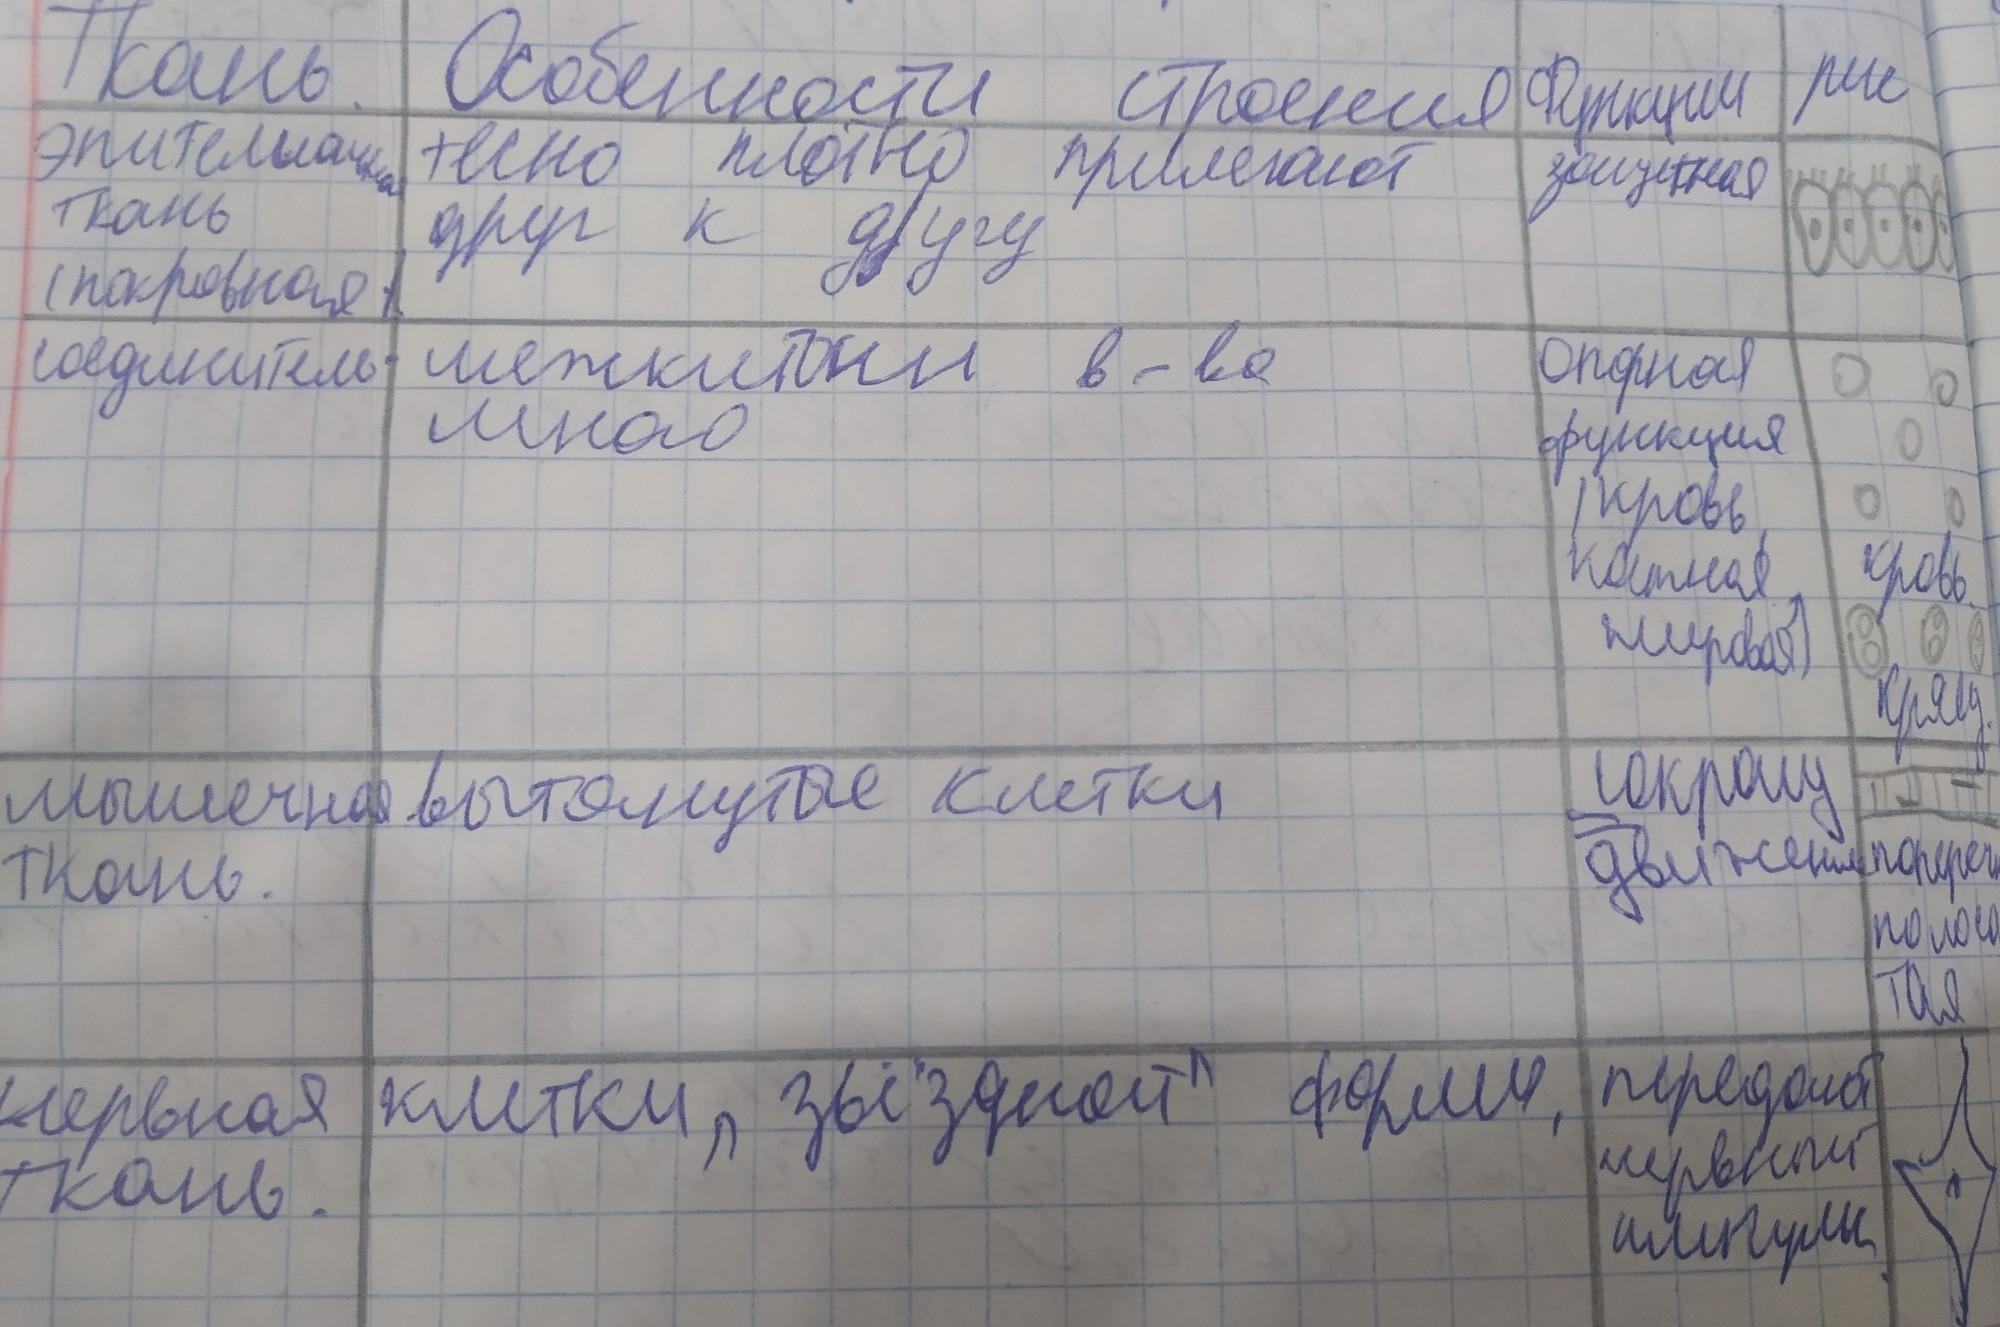 Ткань. Особенности строения Функции рис
эпителиачная тесно плотно прилегают защитная
ткань друг к другу
(покровная)
соединитель- межклточн в-ва опорная
много функция
(кровь,
костная, кровь.
жировая)
хрящ.
мышечная вытянутые клетки сокращ
ткань. движения поперечн
полоса
тая
нервная клетки, "звёздной" формы, передают
ткань. нервный
импульс